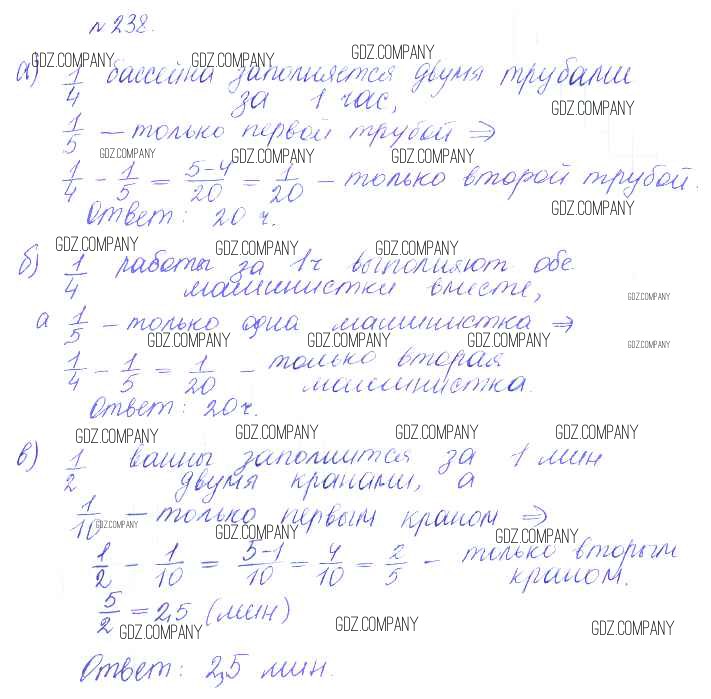 № 238.
GDZ.COMPANY GDZ.COMPANY GDZ.COMPANY
а) 1/4 бассейна заполняется двумя трубами
за 1 час,
GDZ.COMPANY
1/5 – только первой трубой ⇒
GDZ.COMPANY GDZ.COMPANY GDZ.COMPANY
1/4 - 1/5 = 5-4/20 = 1/20 – только второй трубой.
Ответ: 20 ч.
GDZ.COMPANY
GDZ.COMPANY GDZ.COMPANY GDZ.COMPANY
б) 1/4 работы за 1ч выполняют обе
машинистки вместе,
GDZ.COMPANY
а 1/5 – только одна машинистка ⇒
GDZ.COMPANY GDZ.COMPANY GDZ.COMPANY GDZ.COMPANY
1/4 - 1/5 = 1/20 – только вторая
машинистка.
Ответ: 20ч.
GDZ.COMPANY GDZ.COMPANY GDZ.COMPANY GDZ.COMPANY
в) 1/2 ванны заполнится за 1 мин
двумя кранами, а
1/10 – только первым краном ⇒
GDZ.COMPANY GDZ.COMPANY GDZ.COMPANY
1/2 - 1/10 = 5-1/10 = 4/10 = 2/5 – только вторым
краном.
5/2 = 2,5 (мин)
GDZ.COMPANY GDZ.COMPANY GDZ.COMPANY
Ответ: 2,5 мин.